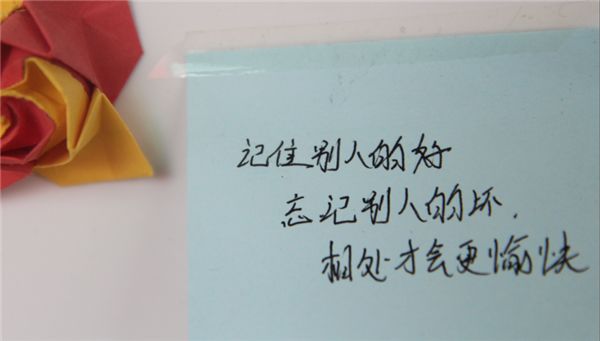 记住别人的好
忘记别人的坏.
相处才会更愉快